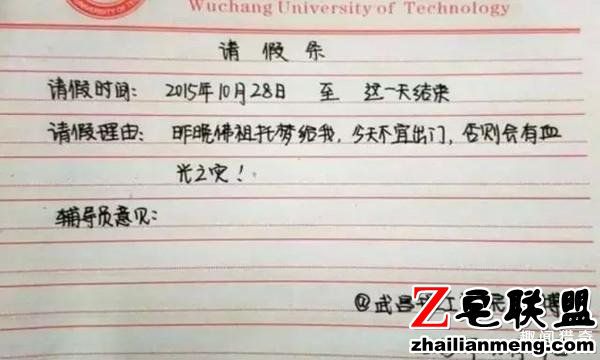 Wuchang University of Technology
UNIVERSITY OF TECHNOLOGY
请假条
请假时间: 2015年10月28日 至 这一天结束
请假理由: 昨晚佛祖托梦给我,今天不宜出门,否则会有血
光之灾!
辅导员意见:
@武昌
Z皂联盟
zhailianmeng.com
趣闻猎奇